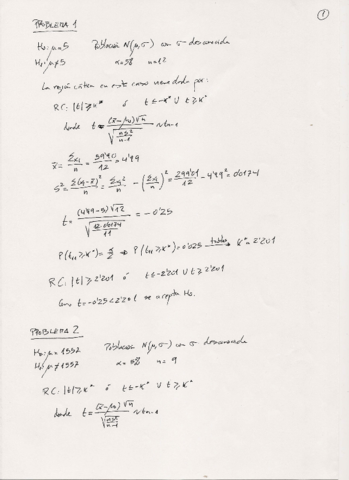 1
PROBLEMA 1
H₀: μ = 5 Población N(μ,σ) con σ desconocida
H₁: μ ≠ 5 α = 5% n = 12
La región crítica en este caso viene dada por:
R.C: |t| ≥ k* ó t ≤ -k* ∪ t ≥ k*
donde t = (x̄ - μ₀)√n / √(ns²/(n-1)) ~ tn-1
x̄ = Σxi/n = 59'90/12 = 4'99
s² = Σ(xi-x̄)²/n = Σxi²/n - (Σxi/n)² = 299'01/12 - 4'99² = 0'0174
t = (4'99-5)√12 / √(12·0'0174/11) = -0'25
P(t₁₁ ≥ k*) = α/2 ⇒ P(t₁₁ ≥ k*) = 0'025 → tablas k* = 2'201
R.C: |t| ≥ 2'201 ó t ≤ -2'201 ∪ t ≥ 2'201
Como t = -0'25 < 2'201 se acepta H₀.
PROBLEMA 2
H₀: μ = 1532 Población N(μ,σ) con σ desconocida
H₁: μ ≠ 1532 α = 5% n = 9
R.C: |t| ≥ k* ó t ≤ -k* ∪ t ≥ k*
donde t = (x̄ - μ₀)√n / √(ns²/(n-1)) ~ tn-1